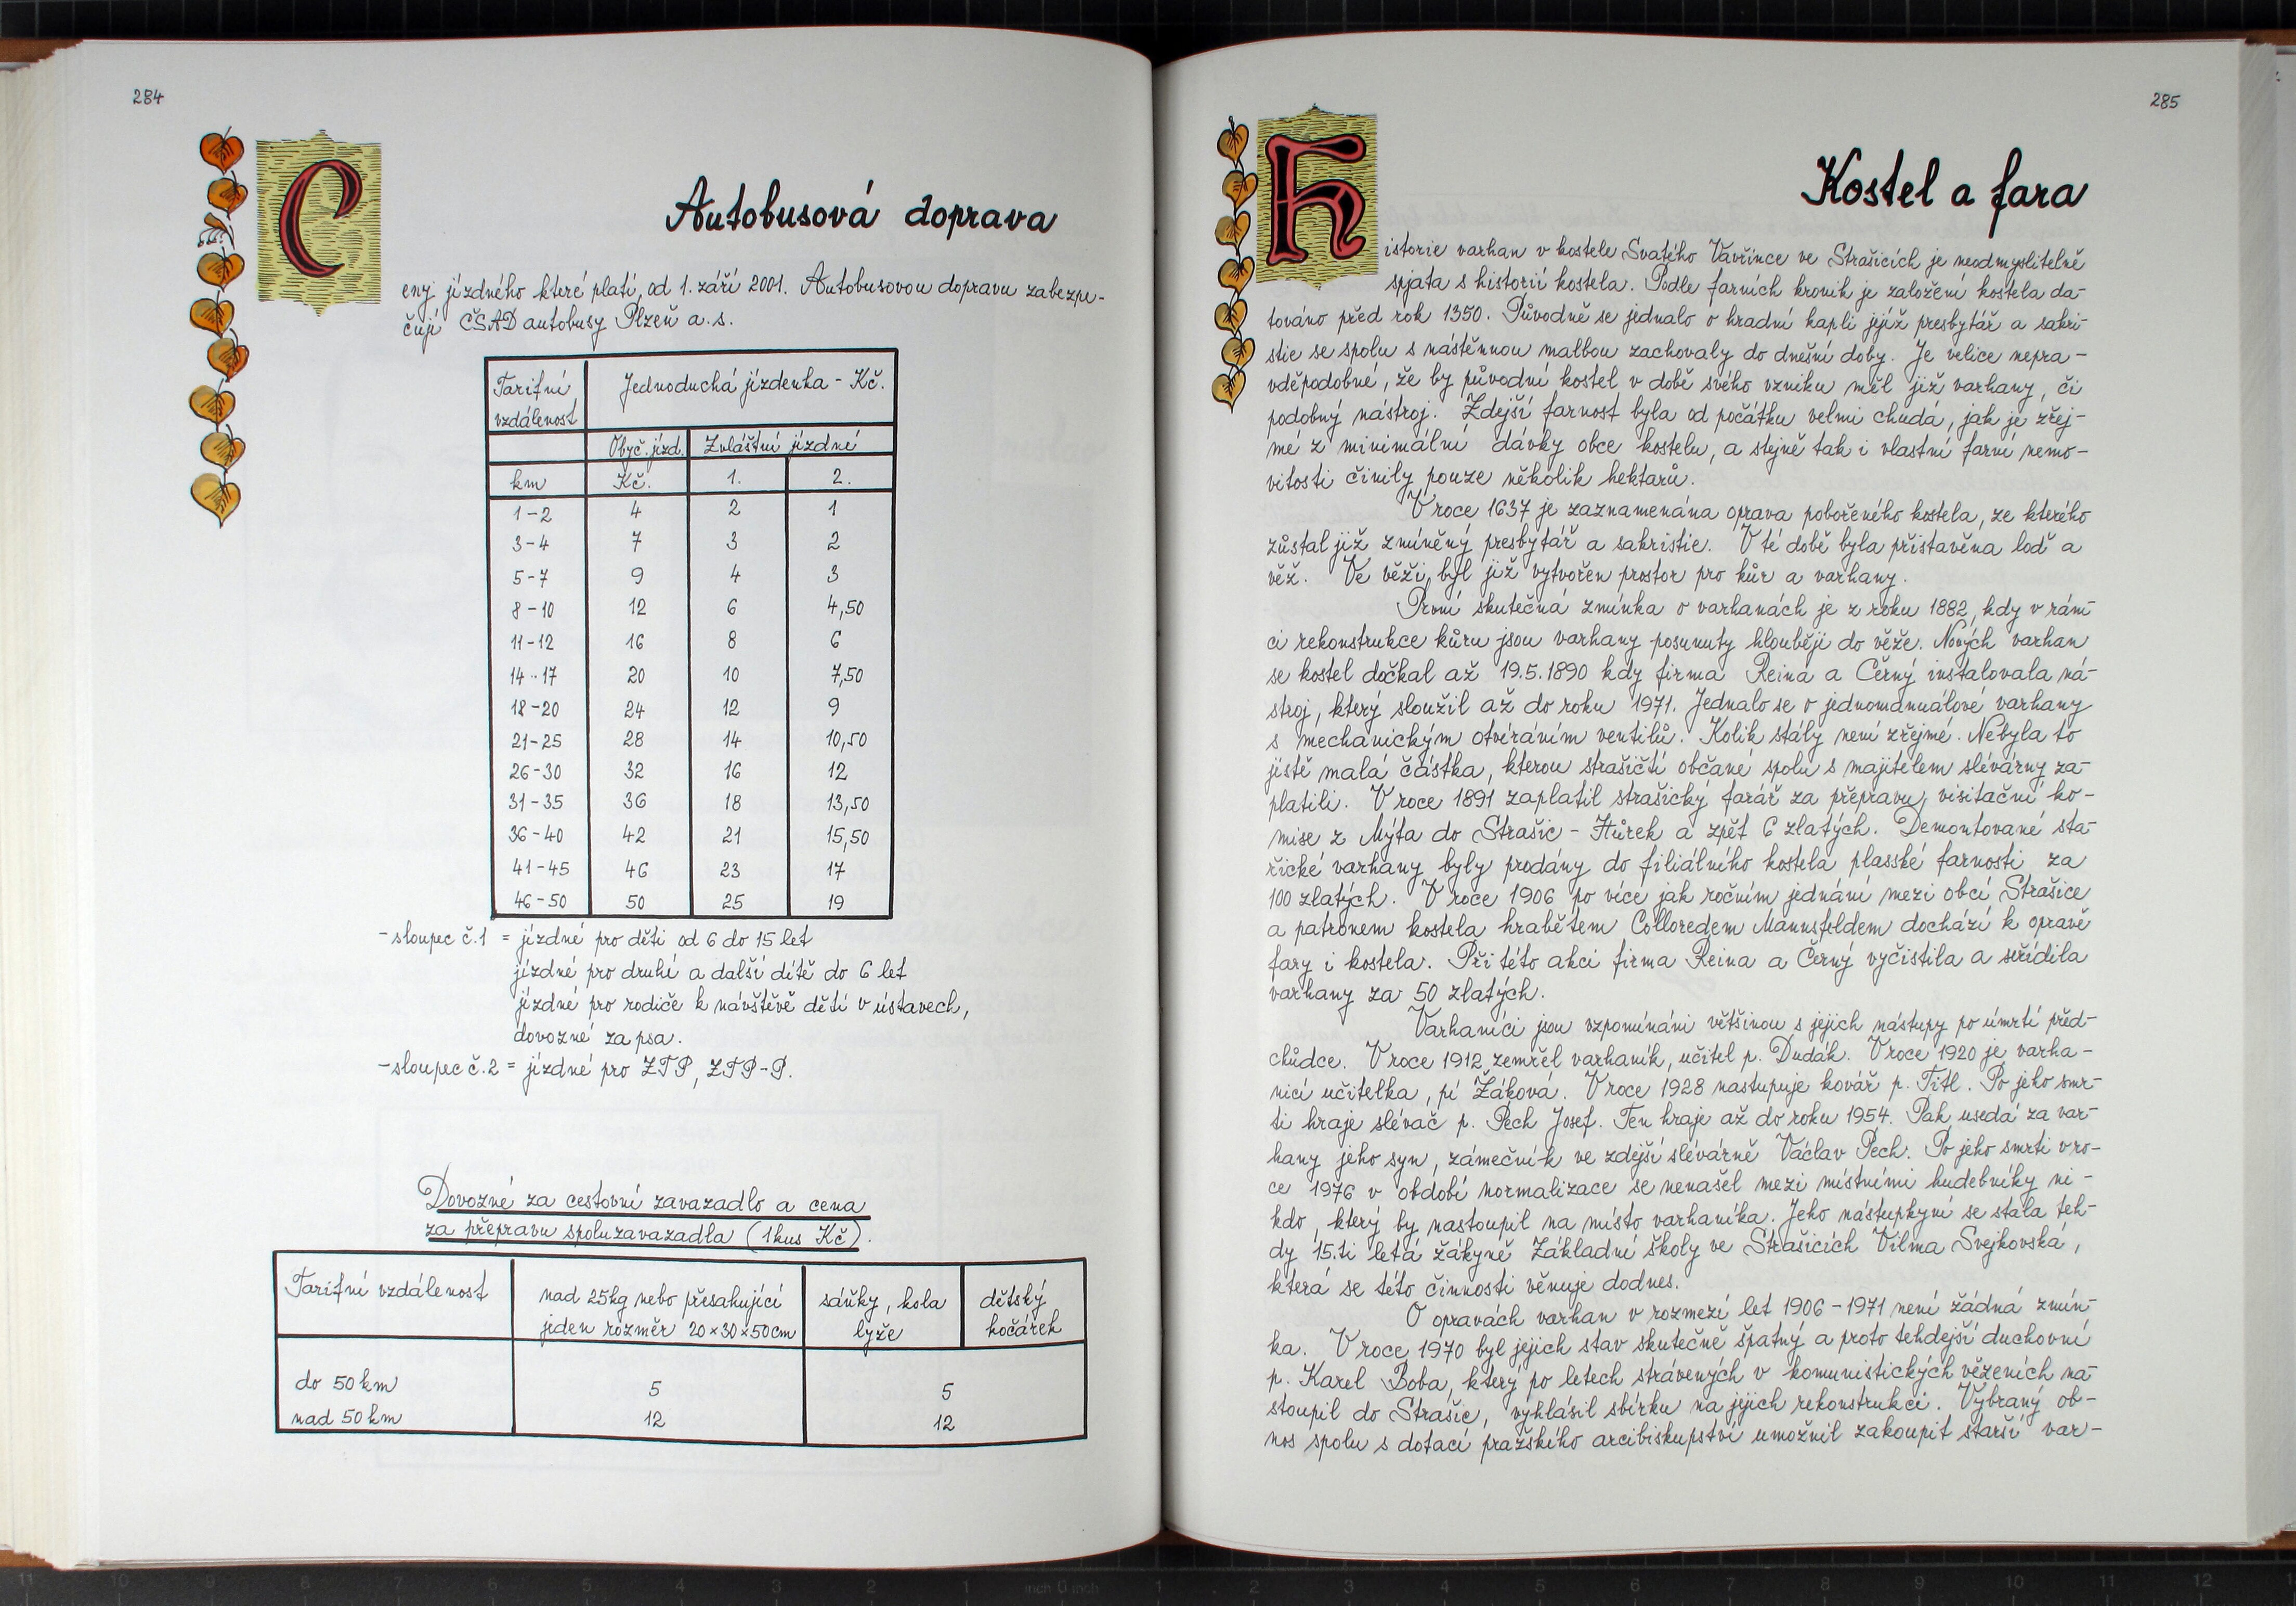 284
Autobusová doprava
Ceny jízdného které platí, od 1. září 2001. Autobusovou dopravu zabezpe-
čují ČSAD autobusy Plzeň a.s.
Tarifní vzdálenost Jednoduchá jízdenka - Kč.
Obyč. jízd. Zvláštní jízdné
km Kč. 1. 2.
1-2 4 2 1
3-4 7 3 2
5-7 9 4 3
8-10 12 6 4,50
11-12 16 8 6
14-17 20 10 7,50
18-20 24 12 9
21-25 28 14 10,50
26-30 32 16 12
31-35 36 18 13,50
36-40 42 21 15,50
41-45 46 23 17
46-50 50 25 19
-sloupec č.1 = jízdné pro děti od 6 do 15 let
jízdné pro druhé a další dítě do 6 let
jízdné pro rodiče k návštěvě dětí v ústavech,
dovozné za psa.
-sloupec č.2 = jízdné pro ZTP, ZTP-P.
Dovozné za cestovní zavazadlo a cena
za přepravu spoluzavazadla (1kus Kč).
Tarifní vzdálenost nad 25kg nebo přesahující jeden rozměr 20×30×50cm sáňky, kola lyže dětský kočárek
do 50 km 5 5
nad 50 km 12 12
285
Kostel a fara
Historie varhan v kostele Svatého Vavřince ve Strašicích je neodmyslitelně
spjata s historií kostela. Podle farních kronik je založení kostela da-
továno před rok 1350. Původně se jednalo o hradní kapli jejíž presbytář a sakri-
stie se spolu s nástěnnou malbou zachovaly do dnešní doby. Je velice nepra-
vděpodobné, že by původní kostel v době svého vzniku měl již varhany, či
podobný nástroj. Zdejší farnost byla od počátku velmi chudá, jak je zřej-
mé z minimální dávky obce kostelu, a stejně tak i vlastní farní nemo-
vitosti činily pouze několik hektarů.
V roce 1637 je zaznamenána oprava pobořeného kostela, ze kterého
zůstal již zmíněný presbytář a sakristie. V té době byla přistavěna loď a
věž. Ve věži, byl již vytvořen prostor pro kůr a varhany.
První skutečná zmínka o varhanách je z roku 1882, kdy v rám-
ci rekonstrukce kůru jsou varhany posunuty hlouběji do věže. Nových varhan
se kostel dočkal až 19.5.1890 kdy firma Reina a Černý instalovala ná-
stroj, který sloužil až do roku 1971. Jednalo se o jednomanuálové varhany
s mechanickým otvíráním ventilů. Kolik stály není zřejmé. Nebyla to
jistě malá částka, kterou strašičtí občané spolu s majitelem slévárny za-
platili. V roce 1891 zaplatil strašický farář za přepravu, visitační ko-
mise z Mýta do Strašic - Hůrek a zpět 6 zlatých. Demontované sta-
řické varhany byly prodány do filiálního kostela plasské farnosti za
100 zlatých. V roce 1906 po více jak ročním jednání mezi obcí Strašice
a patronem kostela hrabětem Colloredem Mannsfeldem dochází k opravě
fary i kostela. Při této akci firma Reina a Černý vyčistila a seřídila
varhany za 50 zlatých.
Varhaníci jsou vzpomínáni většinou s jejich nástupy po úmrtí před-
chůdce. V roce 1912 zemřel varhaník, učitel p. Dudák. V roce 1920 je varha-
nicí učitelka, pí Žáková. V roce 1928 nastupuje kovář p. Titl. Po jeho smr-
ti hraje slévač p. Pech Josef. Ten hraje až do roku 1954. Pak usedá za var-
hany jeho syn, zámečník ve zdejší slévárně Václav Pech. Po jeho smrti v ro-
ce 1976 v období normalizace se nenašel mezi místními hudebníky ni-
kdo, který by nastoupil na místo varhaníka. Jeho nástupkyní se stala teh-
dy 15.ti letá žákyně Základní školy ve Strašicích Vilma Svejkovská,
která se této činnosti věnuje dodnes.
O opravách varhan v rozmezí let 1906-1971 není žádná zmín-
ka. V roce 1970 byl jejich stav skutečně špatný a proto tehdejší duchovní
p. Karel Boba, který po letech strávených v komunistických vězeních na-
stoupil do Strašic, vyhlásil sbírku na jejich rekonstrukci. Vybraný ob-
nos spolu s dotací pražského arcibiskupství umožnil zakoupit starší var-